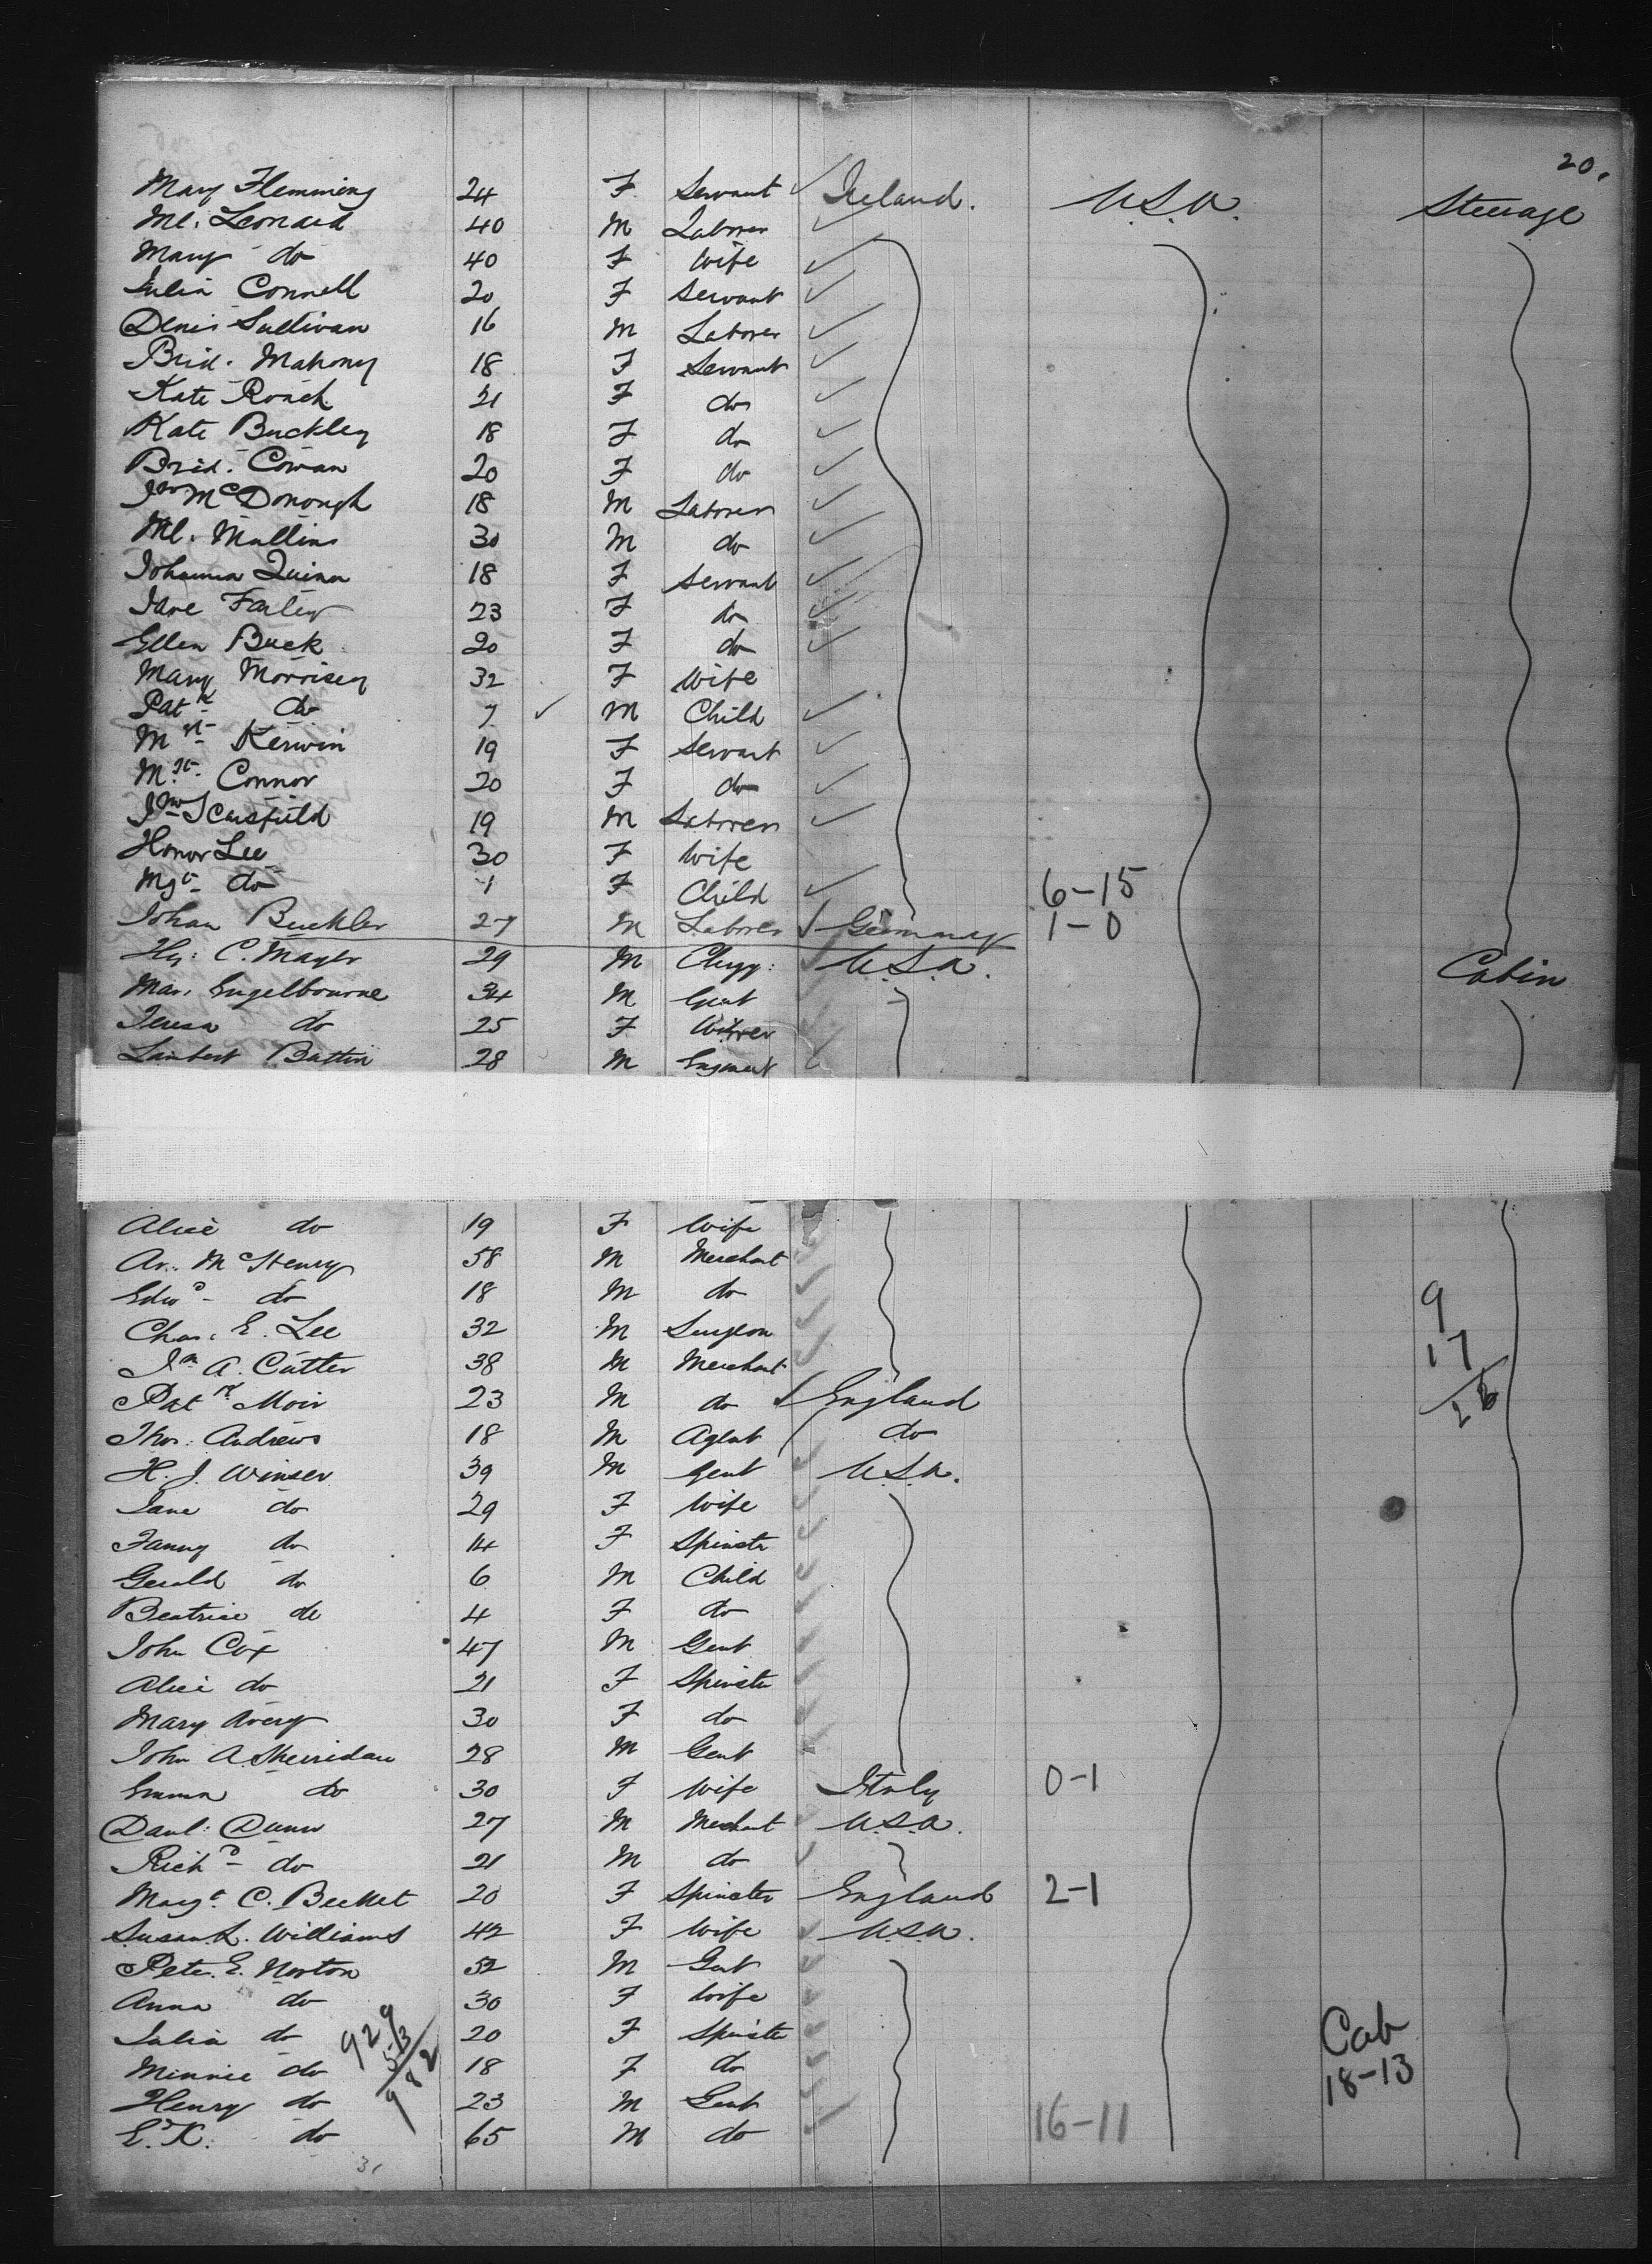 20.
Mary Flemming 24 F Servant Ireland. U.S.A. Steerage
Ml. Leonard 40 M Laborer
Mary do 40 F Wife
Julia Connell 20 F Servant
Denis Sullivan 16 M Laborer
Brid. Mahony 18 F Servant
Kate Roach 21 F do
Kate Buckley 18 F do
Brid. Cowan 20 F do
Jno McDonough 18 M Laborer
Ml. Mullins 30 M do
Johanna Quinn 18 F Servant
Jane Farley 23 F do
Ellen Buck 20 F do
Mary Morrisey 32 F Wife
Patk do 7 M Child
Mgt Kerwin 19 F Servant
Mgt Connor 20 F do
Jno 19 M Laborer
Honor Lee 30 F Wife
Mgt do 1 F Child 6-15
Johan Buckler 27 M Laborer Germany 1-0
Hy: C. Mayer 29 M Clergy: U.S.A. Cabin
Mar. Engelbourne 34 M Gent
Teresa do 25 F
Lambert Battin 28 M
Alice do 19 F Wife
Ar. McHenry 58 M Merchant
Edwd do 18 M do 9
Chas. E. Lee 32 M Surgeon 17
Jas A. Cutter 38 M Merchant 26
Patk Moir 23 M do England
Thos: Andrews 18 M Agent do
H. J. Winser 39 M Gent U.S.A.
Jane do 29 F Wife
Fanny do 14 F Spinster
Gerald do 6 M Child
Beatrice do 4 F do
John Cox 47 M Gent
Alice do 21 F Spinster
Mary Avery 30 F do
John A. Sherridan 28 M Gent
Emma do 30 F Wife Italy 0-1
Danl: Dunn 27 M Merchant U.S.A.
Richd do 21 M do
Margt. C. Becket 20 F Spinster England 2-1
Susan L. Williams 42 F Wife U.S.A.
Pete. E. Norton 52 M Gent
Anna do 30 F Wife
Julia do 929 20 F Spinster Cab
Minnie do 53 18 F do 18-13
Henry do 982 23 M Gent
E. K. do 65 M do 16-11
31